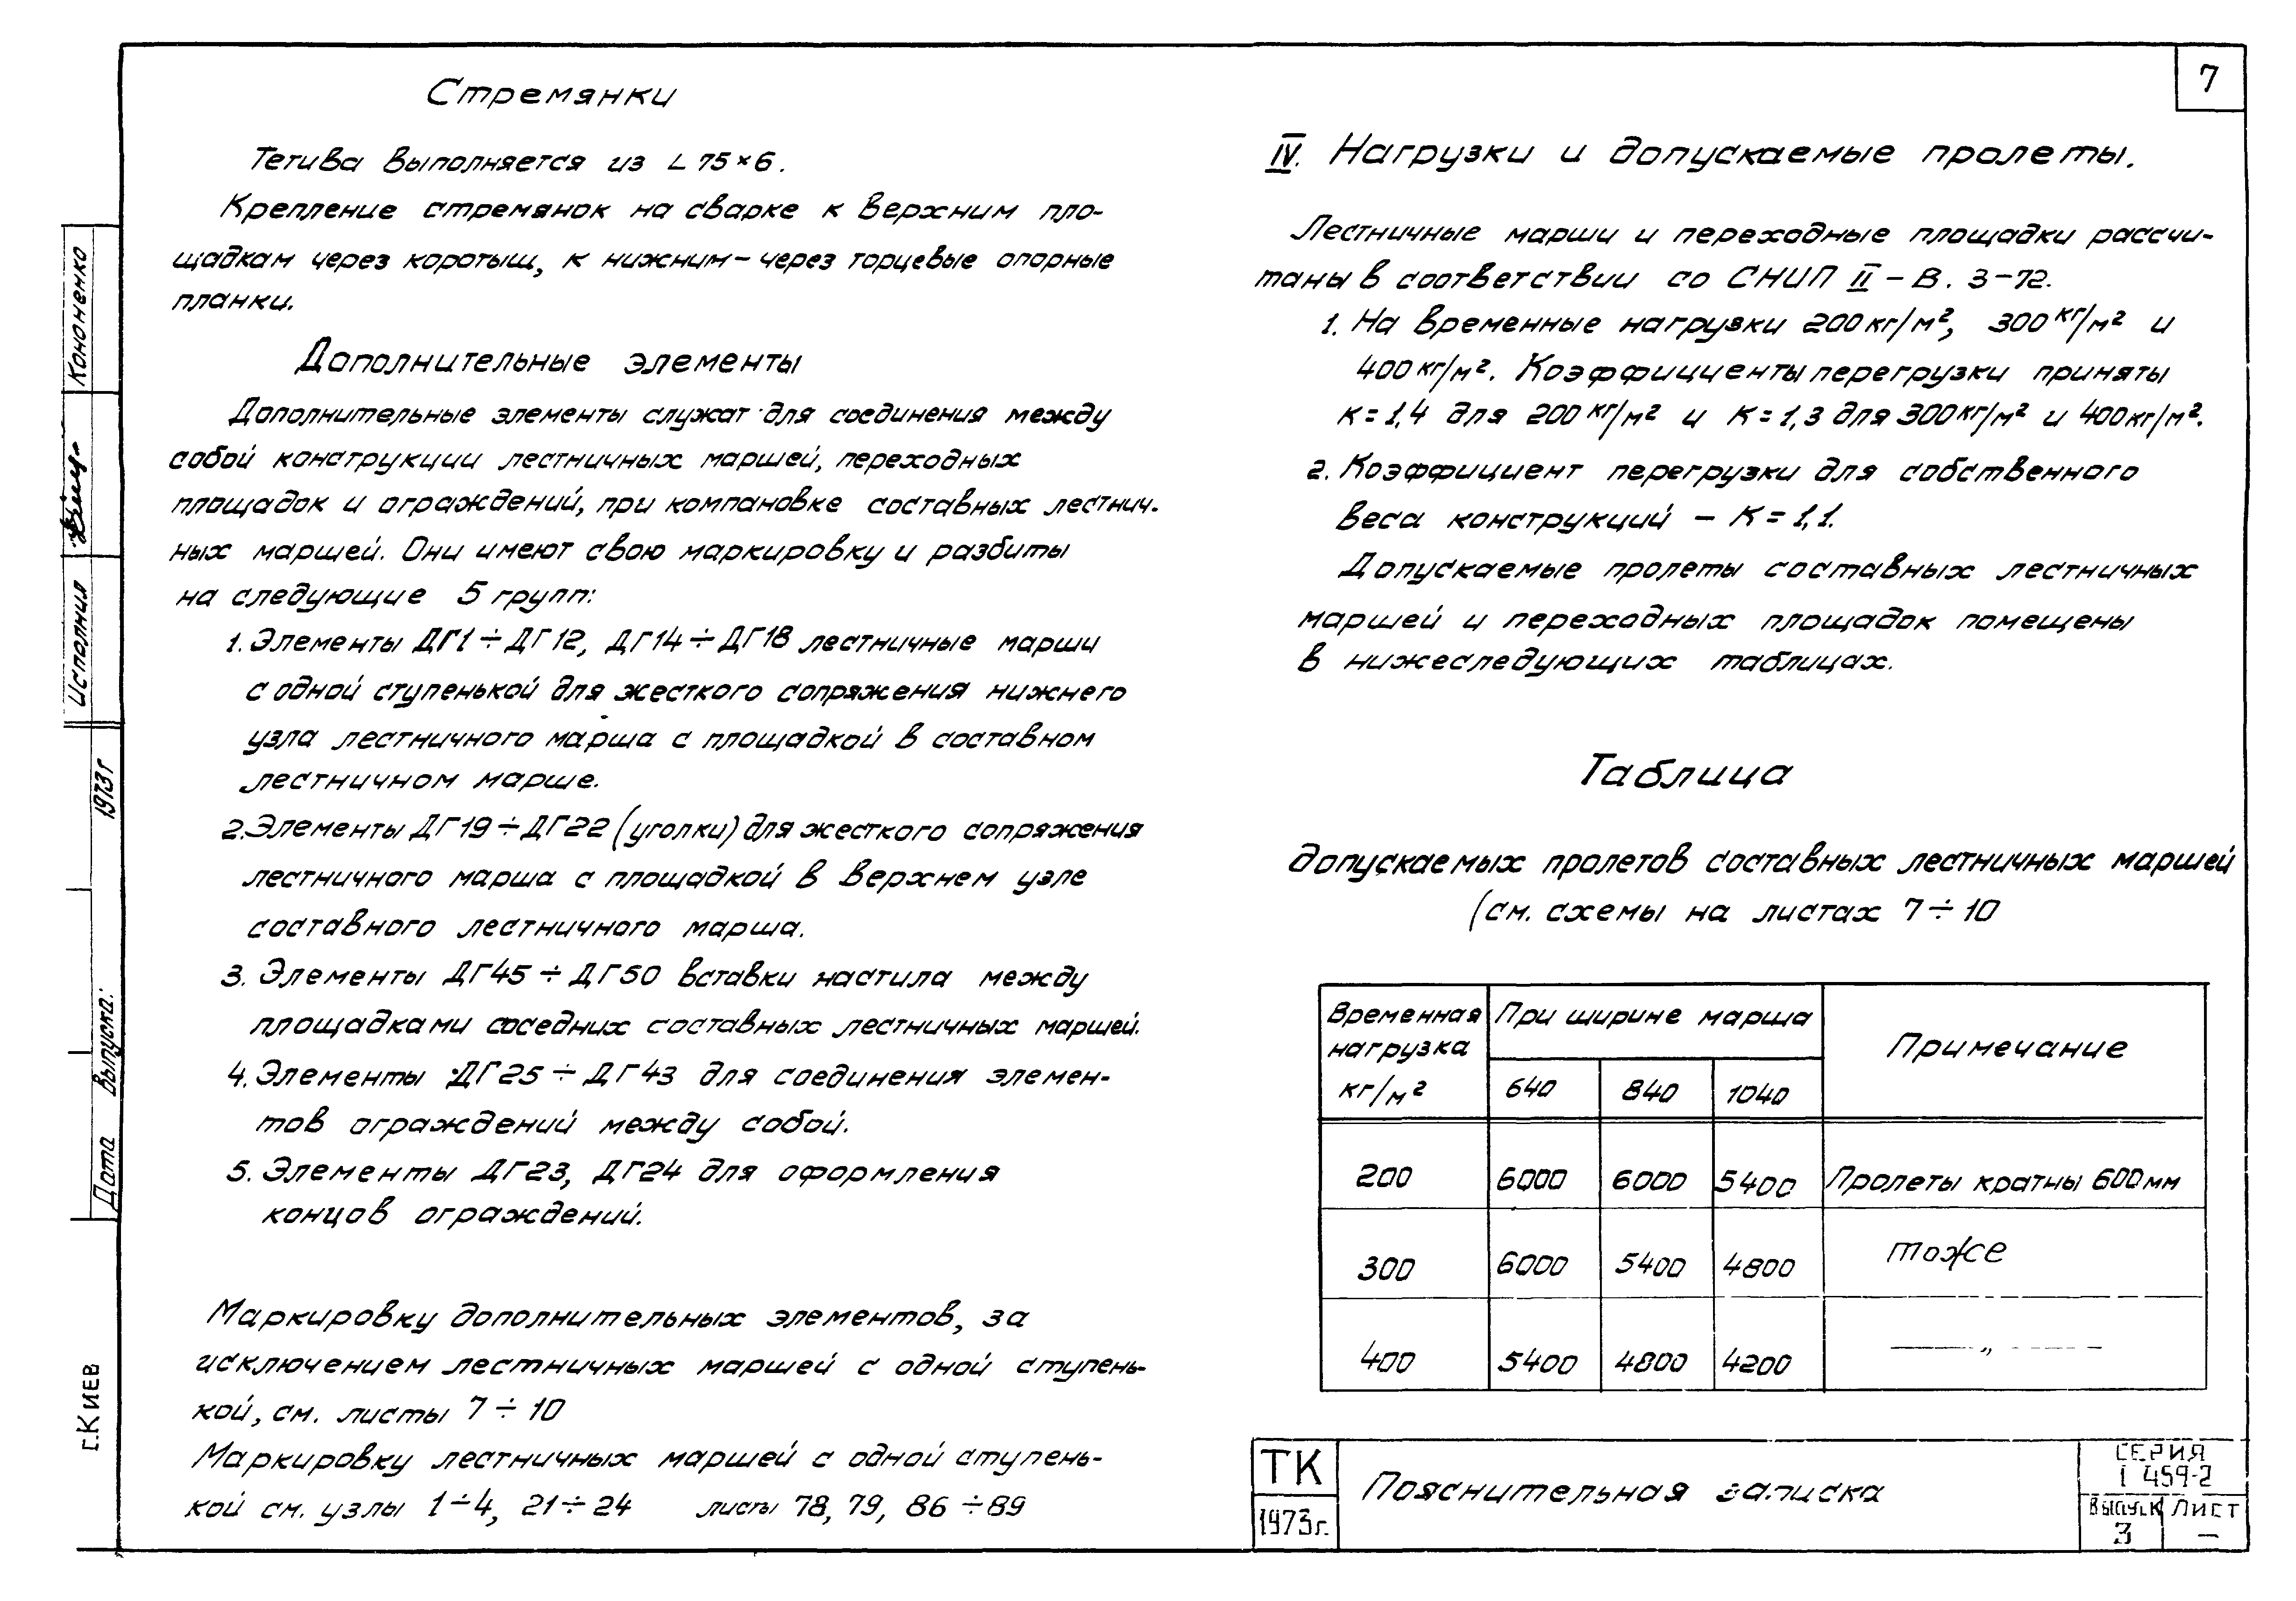 7
Стремянки
Тетива выполняется из ∟ 75×6.
Крепление стремянок на сварке к верхним пло-
щадкам через коротыш, к нижним – через торцевые опорные
планки.
Дополнительные элементы
Дополнительные элементы служат для соединения между
собой конструкции лестничных маршей, переходных
площадок и ограждений, при компановке составных лестнич.
ных маршей. Они имеют свою маркировку и разбиты
на следующие 5 групп:
1. Элементы ДГ1 ÷ ДГ12, ДГ14 ÷ ДГ18 лестничные марши
с одной ступенькой для жесткого сопряжения нижнего
узла лестничного марша с площадкой в составном
лестничном марше.
2. Элементы ДГ19 ÷ ДГ22 (уголки) для жесткого сопряжения
лестничного марша с площадкой в верхнем узле
составного лестничного марша.
3. Элементы ДГ45 ÷ ДГ50 вставки настила между
площадками соседних составных лестничных маршей.
4. Элементы ДГ25 ÷ ДГ43 для соединения элемен-
тов ограждений между собой.
5. Элементы ДГ23, ДГ24 для оформления
концов ограждений.
Маркировку дополнительных элементов, за
исключением лестничных маршей с одной ступень-
кой, см. листы 7 ÷ 10
Маркировку лестничных маршей с одной ступень-
кой см. узлы 1÷4, 21÷24 листы 78, 79, 86 ÷ 89
IV. Нагрузки и допускаемые пролеты.
Лестничные марши и переходные площадки рассчи-
таны в соответствии со СНИП II – В. 3–72.
1. На временные нагрузки 200 кг/м², 300 кг/м² и
400 кг/м². Коэффициенты перегрузки приняты
к = 1,4 для 200 кг/м² и к = 1,3 для 300 кг/м² и 400 кг/м².
2. Коэффициент перегрузки для собственного
веса конструкций – К = 1,1.
Допускаемые пролеты составных лестничных
маршей и переходных площадок помещены
в нижеследующих таблицах.
Таблица
допускаемых пролетов составных лестничных маршей
(см. схемы на листах 7 ÷ 10
Временная нагрузка кг/м² При ширине марша Примечание
640 840 1040
200 6000 6000 5400 Пролеты кратны 600 мм
300 6000 5400 4800 тоже
400 5400 4800 4200 — " —
ТК
1973г.
Пояснительная записка
СЕРИЯ
1 459-2
Выпуск Лист
3 —
Кононенко
Исполнил
1973г
Дата выпуска:
г. Киев